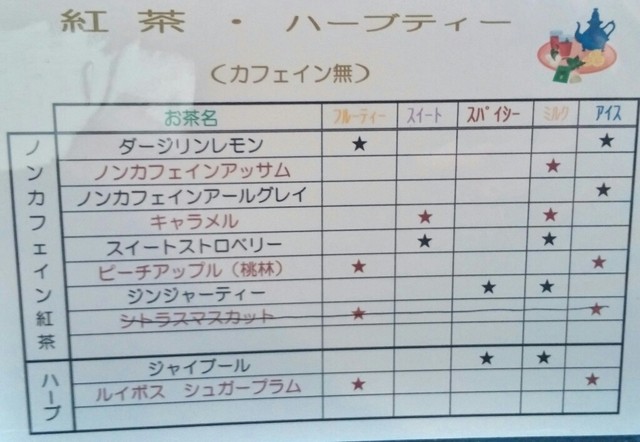 紅茶・ハーブティー
（カフェイン無）
お茶名 フルーティー スイート スパイシー ミルク アイス
ノンカフェイン紅茶
ダージリンレモン ★ ★
ノンカフェインアッサム ★
ノンカフェインアールグレイ ★
キャラメル ★ ★
スイートストロベリー ★ ★
ピーチアップル（桃林） ★ ★
ジンジャーティー ★ ★
シトラスマスカット ★ ★
ハーブ
ジャイプール ★ ★
ルイボス シュガープラム ★ ★